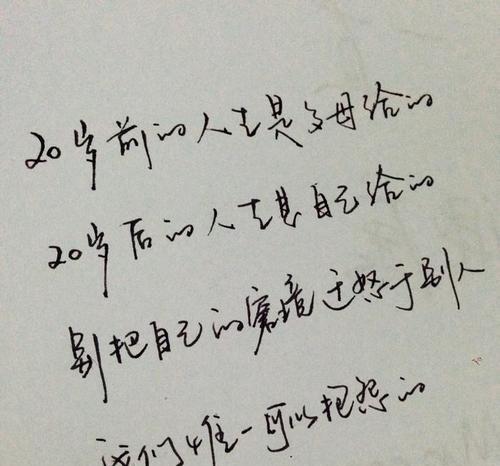 20岁前的人生是父母给的
20岁后的人生是自己给的
别把自己的窘境迁怒于别人
我们唯一可以抱怨的